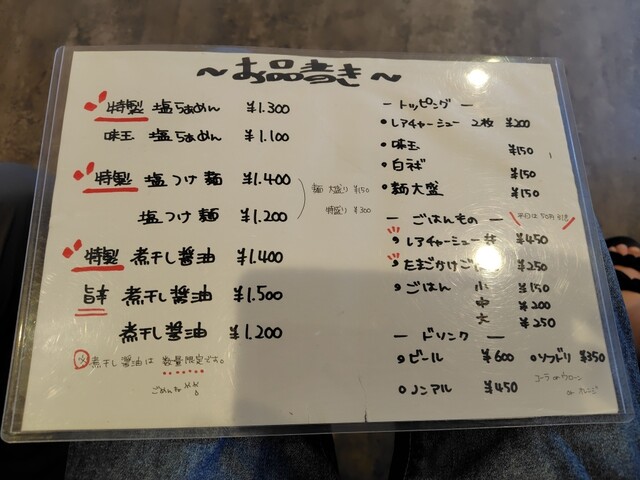 ～お品書き～
特製 塩らぁめん ¥1.300
味玉 塩らぁめん ¥1.100
特製 塩つけ麺 ¥1.400
麺 大盛り ¥150
特盛り ¥300
塩つけ麺 ¥1.200
特製 煮干し醤油 ¥1.400
旨辛 煮干し醤油 ¥1.500
煮干し醤油 ¥1.200
※煮干し醤油は 数量限定です。
ごめんなさい。
ー トッピング ー
・レアチャーシュー 2枚 ¥200
・味玉 ¥150
・白ネギ ¥150
・麺大盛 ¥150
ー ごはんもの ー
平日は50円引き
・レアチャーシュー丼 ¥450
・たまごかけごはん ¥250
・ごはん 小 ¥150
中 ¥200
大 ¥250
ー ドリンク ー
・ビール ¥600
・ソフドリ ¥350
コーラ or ウーロン
or オレンジ
・ノンアル ¥450